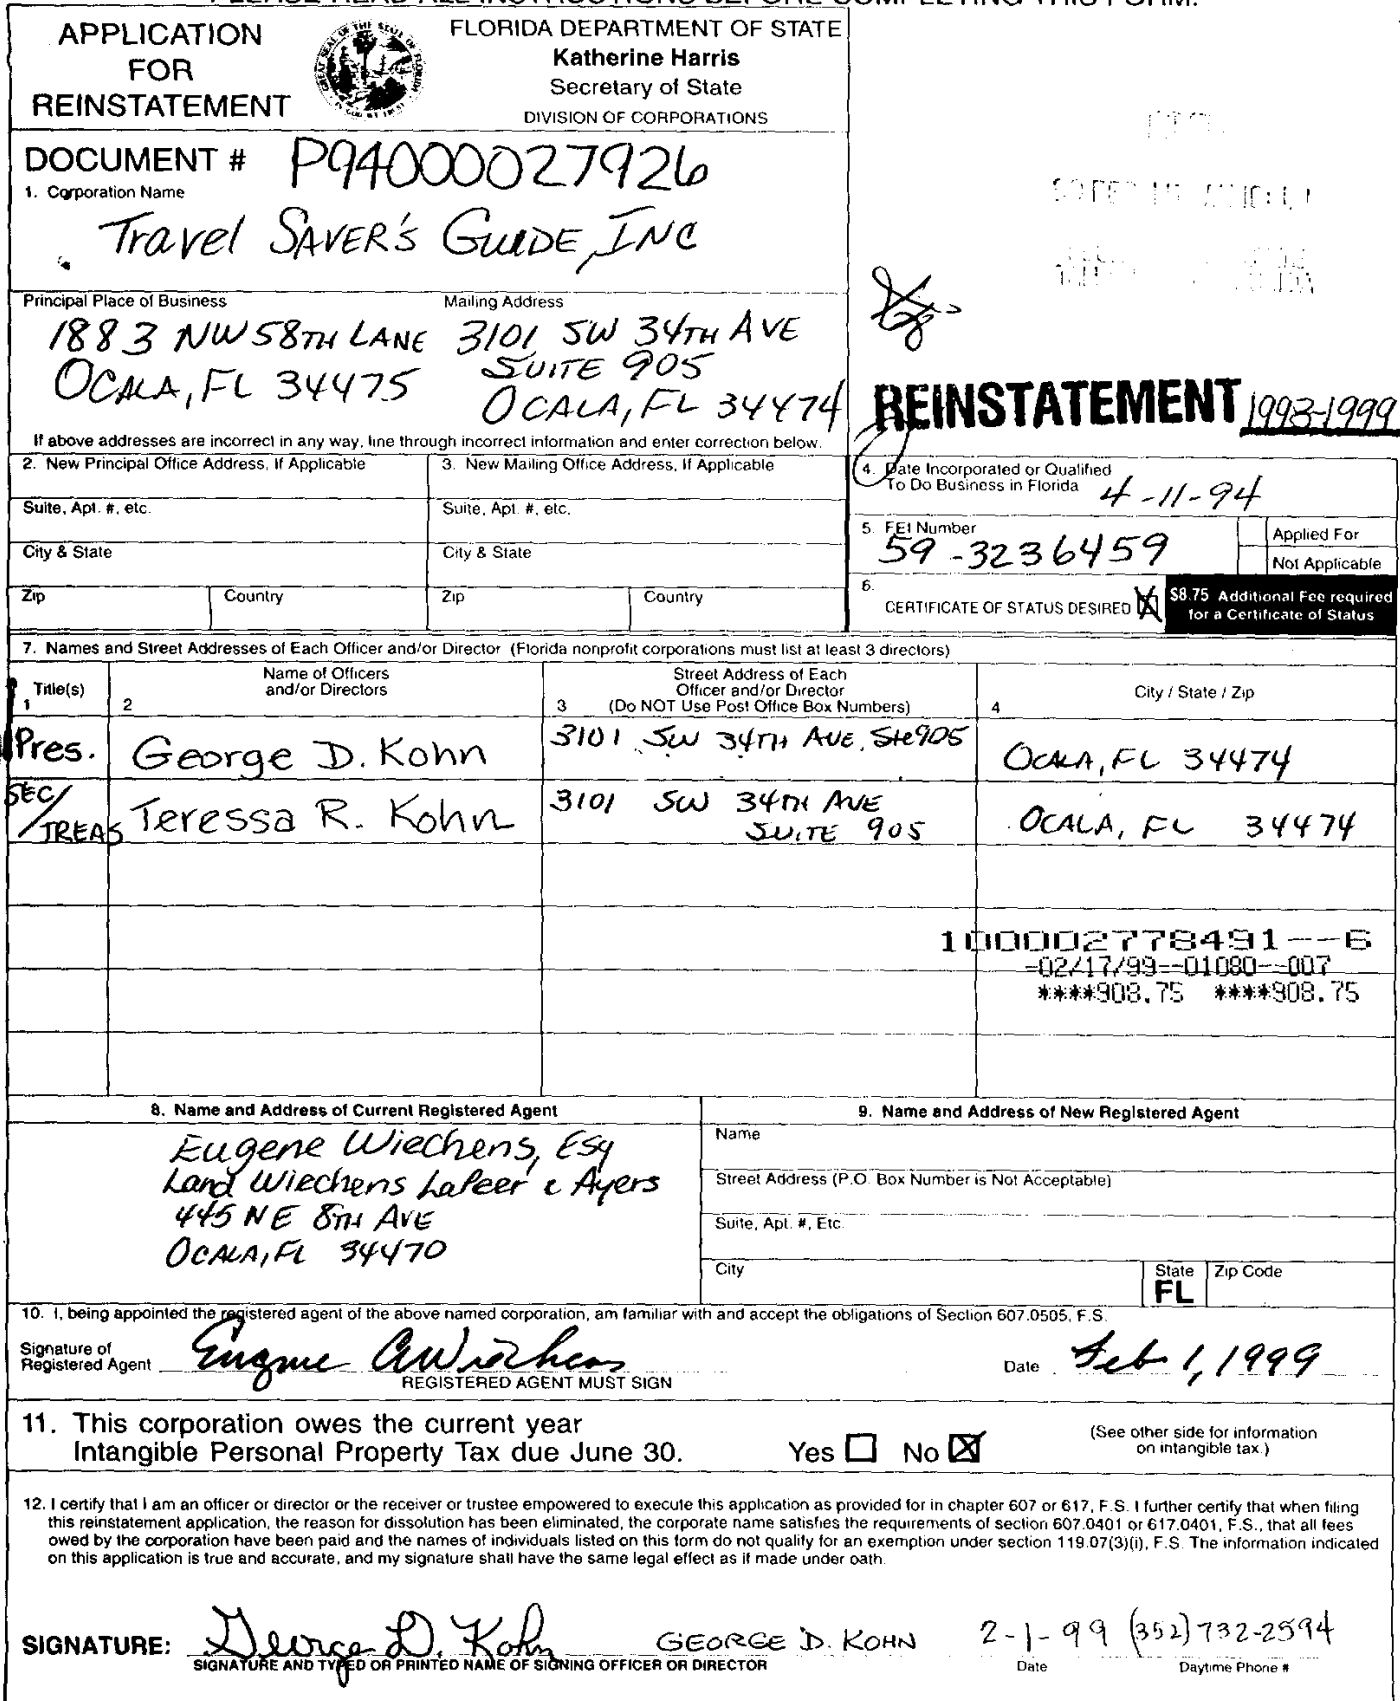 PLEASE READ ALL INSTRUCTIONS BEFORE COMPLETING THIS FORM.
APPLICATION
FOR
REINSTATEMENT
FLORIDA DEPARTMENT OF STATE
Katherine Harris
Secretary of State
DIVISION OF CORPORATIONS
DOCUMENT # P94000027926
1. Corporation Name
Travel SAVER'S GUIDE, INC
Principal Place of Business
1883 NW 58TH LANE
OCALA, FL 34475
Mailing Address
3101 SW 34TH AVE
SUITE 905
OCALA, FL 34474
REINSTATEMENT 1998-1999
If above addresses are incorrect in any way, line through incorrect information and enter correction below.
2. New Principal Office Address, If Applicable
3. New Mailing Office Address, If Applicable
Suite, Apt. #, etc.
Suite, Apt. #, etc.
City & State
City & State
Zip
Country
Zip
Country
4. Date Incorporated or Qualified
To Do Business in Florida 4-11-94
5. FEI Number
59-3236459
Applied For
Not Applicable
6.
CERTIFICATE OF STATUS DESIRED X
$8.75 Additional Fee required
for a Certificate of Status
7. Names and Street Addresses of Each Officer and/or Director (Florida nonprofit corporations must list at least 3 directors)
Title(s)
1
Name of Officers
and/or Directors
2
Street Address of Each
Officer and/or Director
3 (Do NOT Use Post Office Box Numbers)
City / State / Zip
4
Pres. George D. Kohn 3101 SW 34TH AVE, Ste 905 OCALA, FL 34474
SEC/TREAS Teressa R. Kohn 3101 SW 34TH AVE OCALA, FL 34474
SUITE 905
1000002778491--6
-02/17/99--01080--007
****908.75 ****908.75
8. Name and Address of Current Registered Agent
Eugene Wiechens, Esq
Land Wiechens LaPeer & Ayers
445 NE 8TH AVE
OCALA, FL 34470
9. Name and Address of New Registered Agent
Name
Street Address (P.O. Box Number is Not Acceptable)
Suite, Apt. #, Etc.
City
State
FL
Zip Code
10. I, being appointed the registered agent of the above named corporation, am familiar with and accept the obligations of Section 607.0505, F.S.
Signature of
Registered Agent Eugene A Wiechens
REGISTERED AGENT MUST SIGN
Date Feb 1, 1999
11. This corporation owes the current year
Intangible Personal Property Tax due June 30. Yes No X
(See other side for information
on intangible tax.)
12. I certify that I am an officer or director or the receiver or trustee empowered to execute this application as provided for in chapter 607 or 617, F.S. I further certify that when filing
this reinstatement application, the reason for dissolution has been eliminated, the corporate name satisfies the requirements of section 607.0401 or 617.0401, F.S., that all fees
owed by the corporation have been paid and the names of individuals listed on this form do not qualify for an exemption under section 119.07(3)(i), F.S. The information indicated
on this application is true and accurate, and my signature shall have the same legal effect as if made under oath.
SIGNATURE: George D. Kohn GEORGE D. KOHN 2-1-99 (352) 732-2594
SIGNATURE AND TYPED OR PRINTED NAME OF SIGNING OFFICER OR DIRECTOR
Date
Daytime Phone #